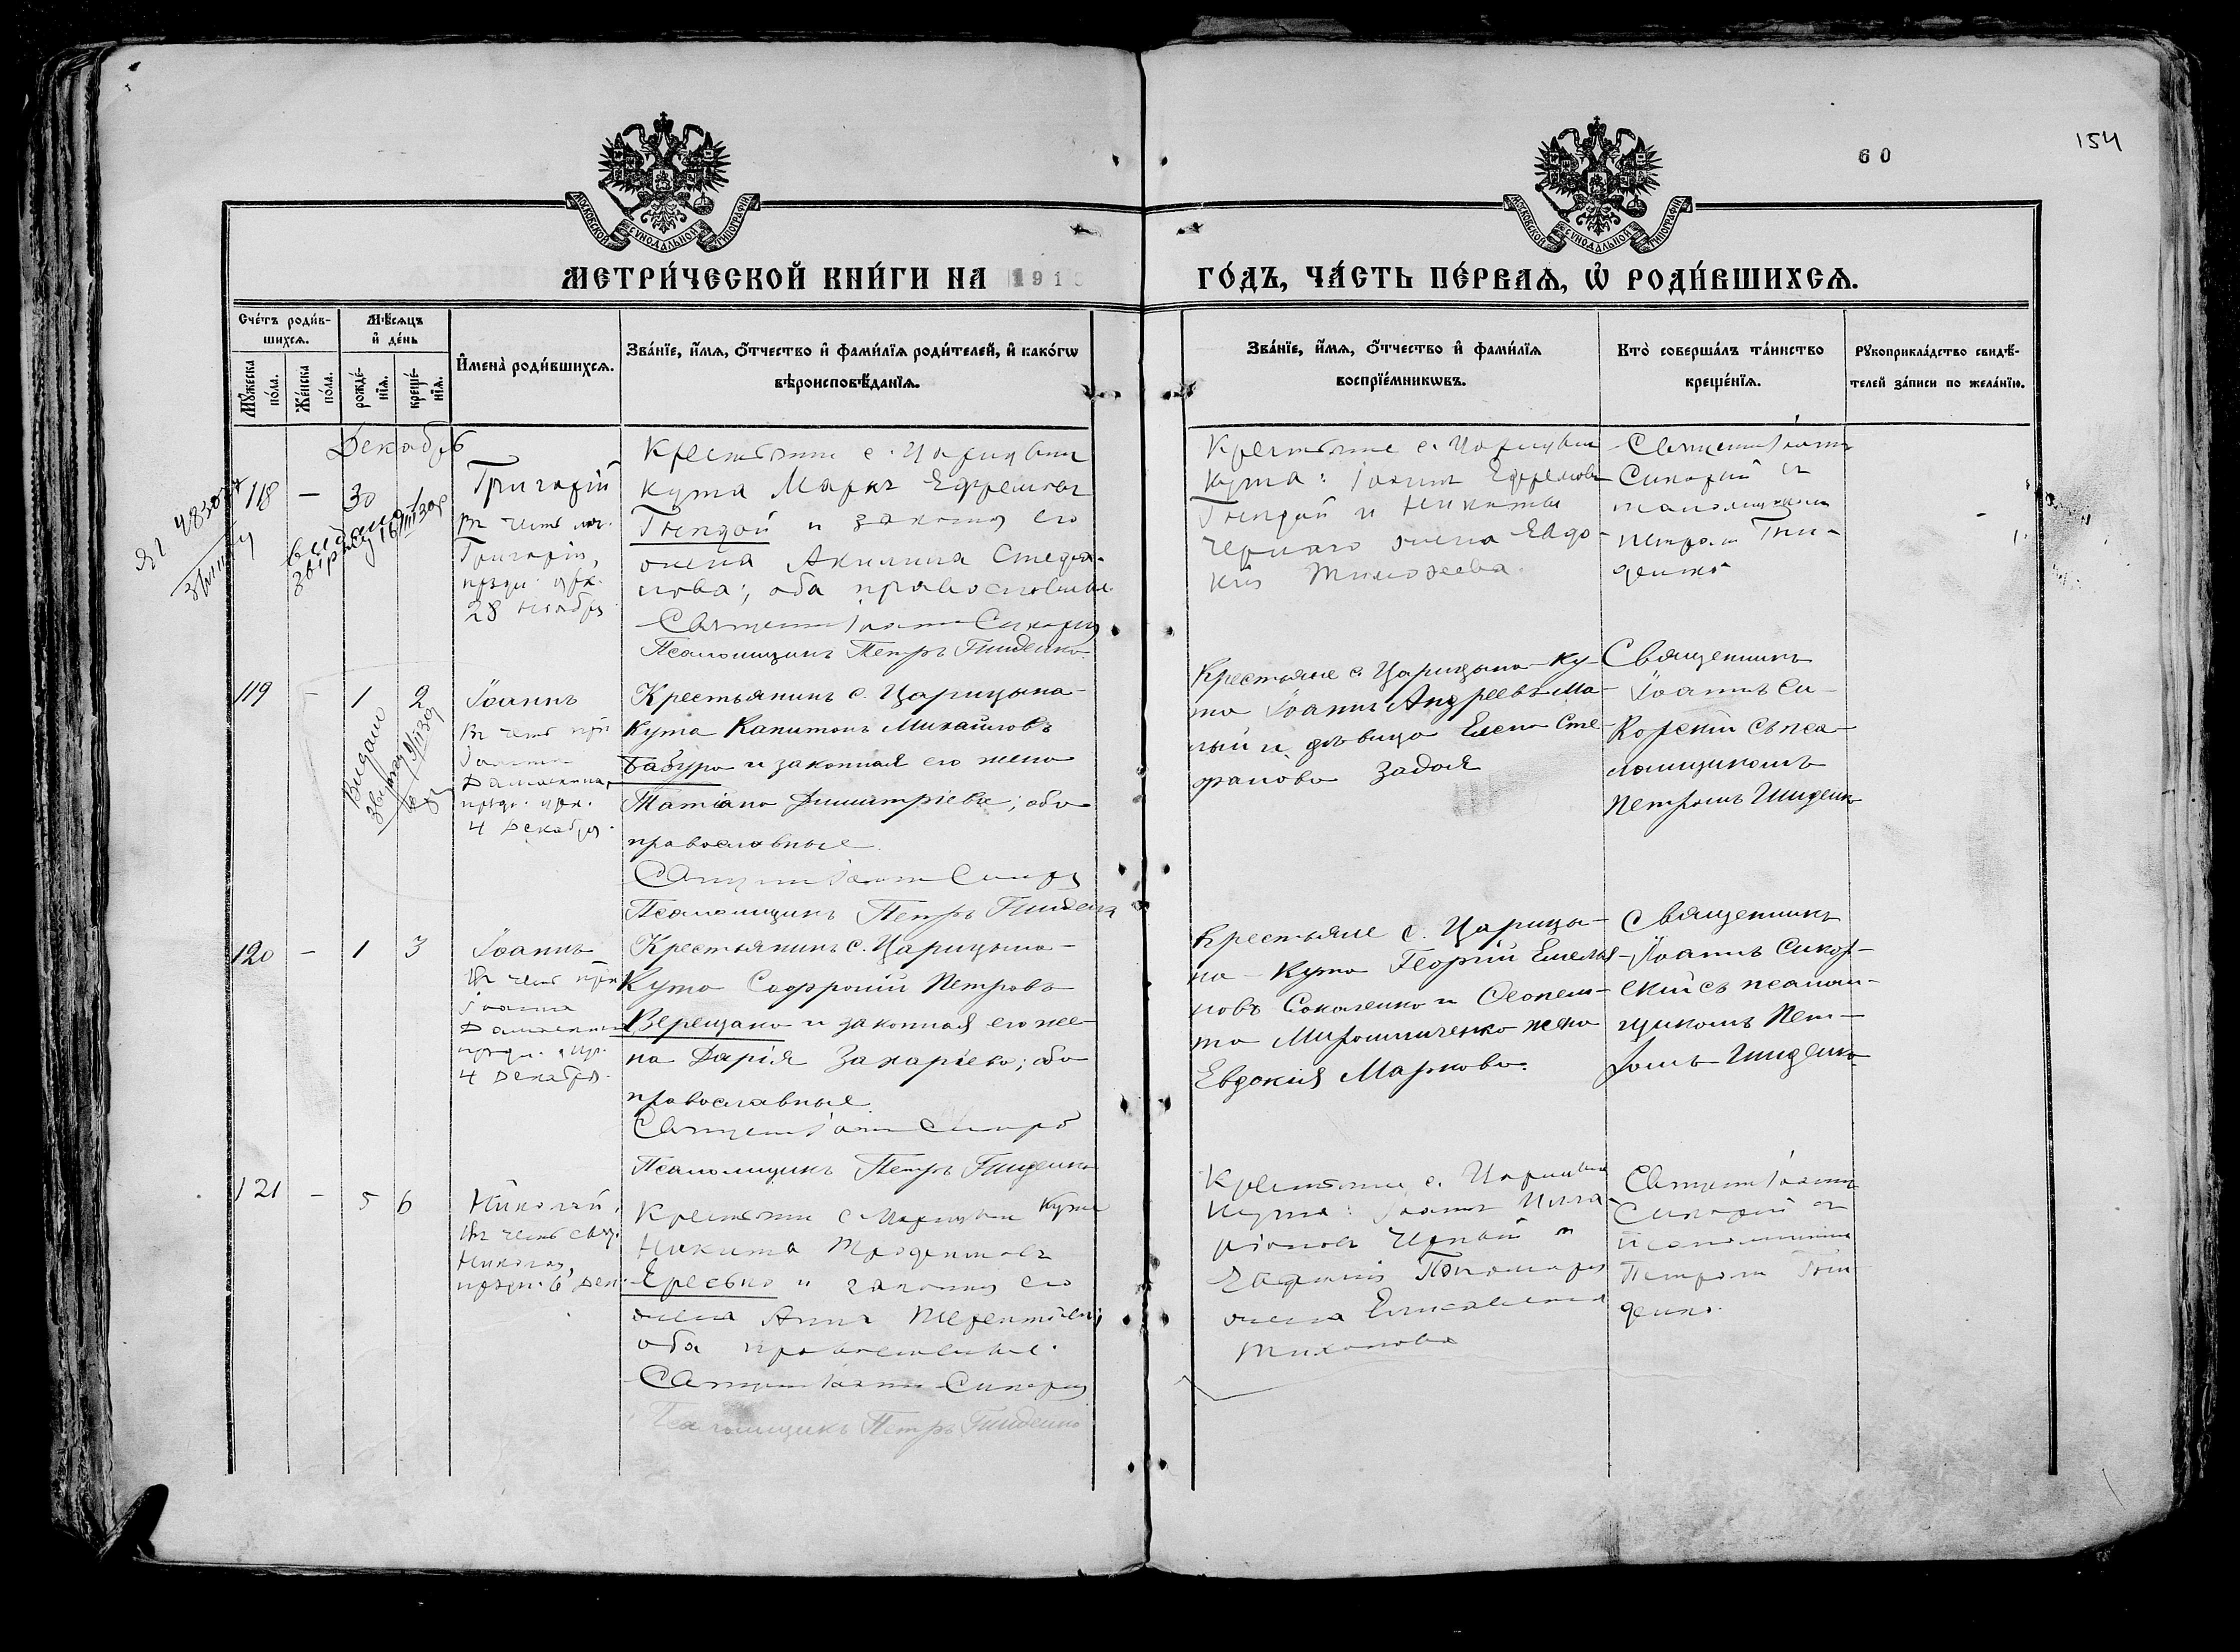 154
60
МОСКОВСКОЙ СѴНОДАЛЬНОЙ ТИПОГРАФІИ
МОСКОВСКОЙ СѴНОДАЛЬНОЙ ТИПОГРАФІИ
МЕТРИ́ЧЕСКОЙ КНИ́ГИ НА 191
ГО́ДЪ, ЧА́СТЬ ПЕ́РВАѦ, Ѡ҆ РОДИ́ВШИХСѦ.
Сче́тъ роди́в-
шихсѧ.
Мꙋ́жеска
по́ла.
Же́нска
по́ла.
Мѣ́сѧцъ
и҆ де́нь
рожде́-
нїѧ.
креще́-
нїѧ.
И҆мена̀ роди́вшихсѧ.
Зва́нїе, и҆́мѧ, ѻ҆́тчество и҆ фами́лїѧ роди́телей, и҆ како́гѡ
вѣроисповѣ́данїѧ.
Зва́нїе, и҆́мѧ, ѻ҆́тчество и҆ фами́лїѧ
воспрїе́мникѡвъ.
Кто̀ соверша́лъ та́инство
креще́нїѧ.
Рꙋкоприкла́дство свидѣ́-
телей за́писи по жела́нїю.
Декабрь
118 – 30 1
Григорій
Въ честь
Григорія,
28 ноября
Крестьянин с. Царицына
кута Маркъ Ефремовъ
Гнидой и законная его
жена Акилина Стефа-
нова; оба православные
Священ Іоаннъ Сикорскій
Псаломщикъ Петръ Гниденко
Крестьяне с. Царицына
кута: Іоаннъ Ефремовъ
Гнидой и Никиты
Чернаго жена Евдо-
кія Тимофеева.
Священ Іоаннъ
Сикорскій съ
псаломщикомъ
Петромъ Гни-
денко
119 – 1 2
Іоаннъ
Въ честь пр.
Іоанна
Дамаскина,
4 Декабря.
Видано
Крестьянинъ с. Царицына-
Кута Капитонъ Михайловъ
Бабура и законная его жена
Татіана Димитріева; оба
православные
Священ Іоаннъ
Псаломщикъ Петръ Гниденко
Крестьяне с. Царицына-Ку-
та Іоаннъ Андреевъ Ма-
лый и дѣвица Елена Сте-
фанова Задоя
Священникъ
Іоаннъ Си-
корскій съ пса-
ломщикомъ
Петромъ Гниденко
120 – 1 3
Іоаннъ
Въ честь пр.
Іоанна
Дамаскина
4 Декабря.
Крестьянинъ с. Царицына-
Кута Софроній Петровъ
Верещака и законная его же-
на Дарія Захаріева; оба
православные.
Священ Іоаннъ
Псаломщикъ Петръ Гниденко
Крестьяне с. Царицы-
на-Кута Георгій Емелья-
новъ Соколенко и Феопем-
та Мирошниченко жена
Евдокія Маркова.
Священникъ
Іоаннъ Сикор-
скій съ псалом-
щикомъ Пет-
ромъ Гниденко
121 – 5 6
Николай,
Въ честь свят.
Николая,
празд. 6 Дек.
Крестьянин с. Царицына Кута
Никита
Ересько и законная его
жена Анна Терентіева;
оба православные.
Священ Іоаннъ Сикорскій
Псаломщикъ Петръ Гниденко
Крестьяне с. Царицына
Кута: Іоаннъ Илла-
ріоновъ Черный и
жена Елисавета
Тихонова
Священ Іоаннъ
Сикорскій съ
псаломщикомъ
Петромъ Гни
денко.